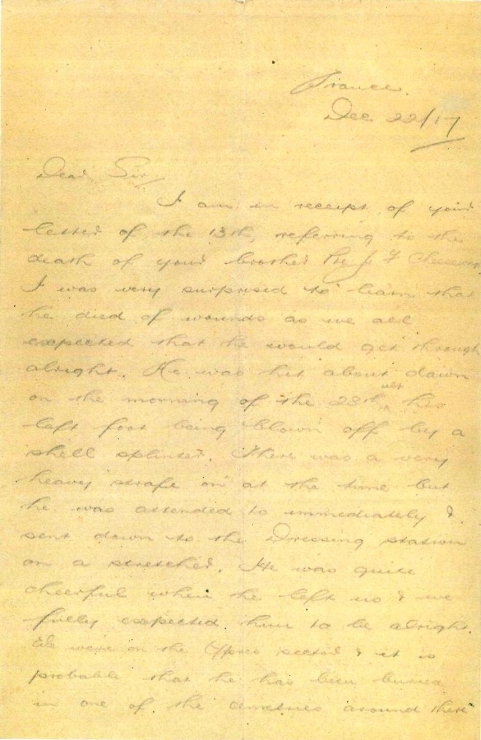 France.
Dec 22/17
Dear Sir,
I am in receipt of your
letter of the 13th, referring to the
death of your brother Pte J F
I was very surprised to learn that
he died of wounds as we all
expected that he would get through
alright. He was hit about dawn
on the morning of the 28th ult his
left foot being blown off by a
shell splinter. There was a very
heavy strafe on at the time but
he was attended to immediately &
sent down to the Dressing station
on a stretcher. He was quite
cheerful when he left us & we
fully expected him to be alright.
We were on the Ypres sector & it is
probable that he has been buried
in one of the cemeteries around there